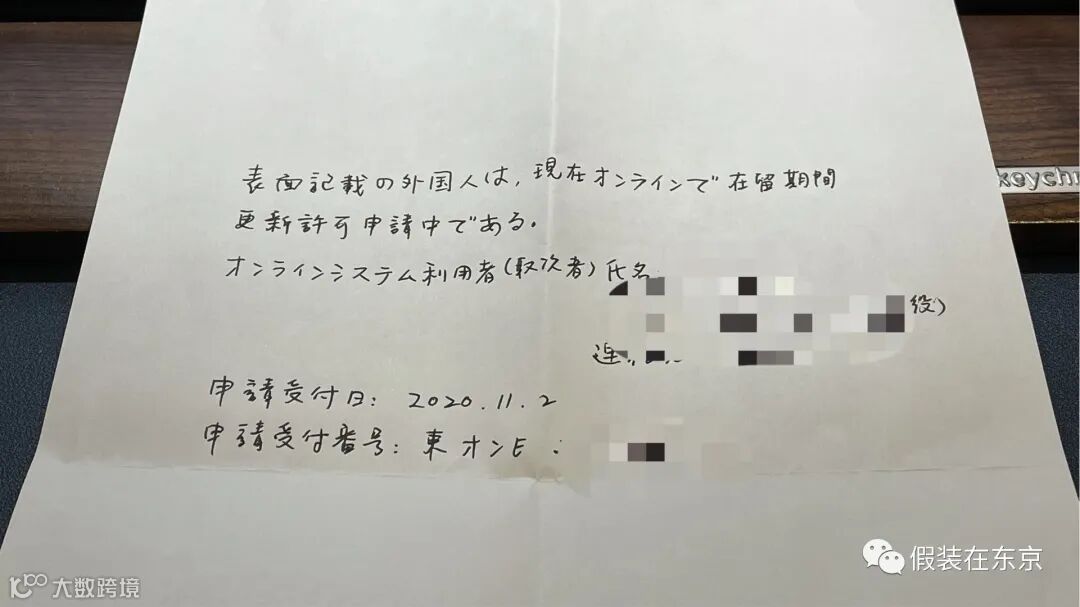 表面記載の外国人は,現在オンラインで在留期間
更新許可申請中である。
オンラインシステム利用者(取次者)氏名
役)
連
申請受付日: 2020.11.2
申請受付番号: 東オンE
keychr
假装在东京
大数跨境